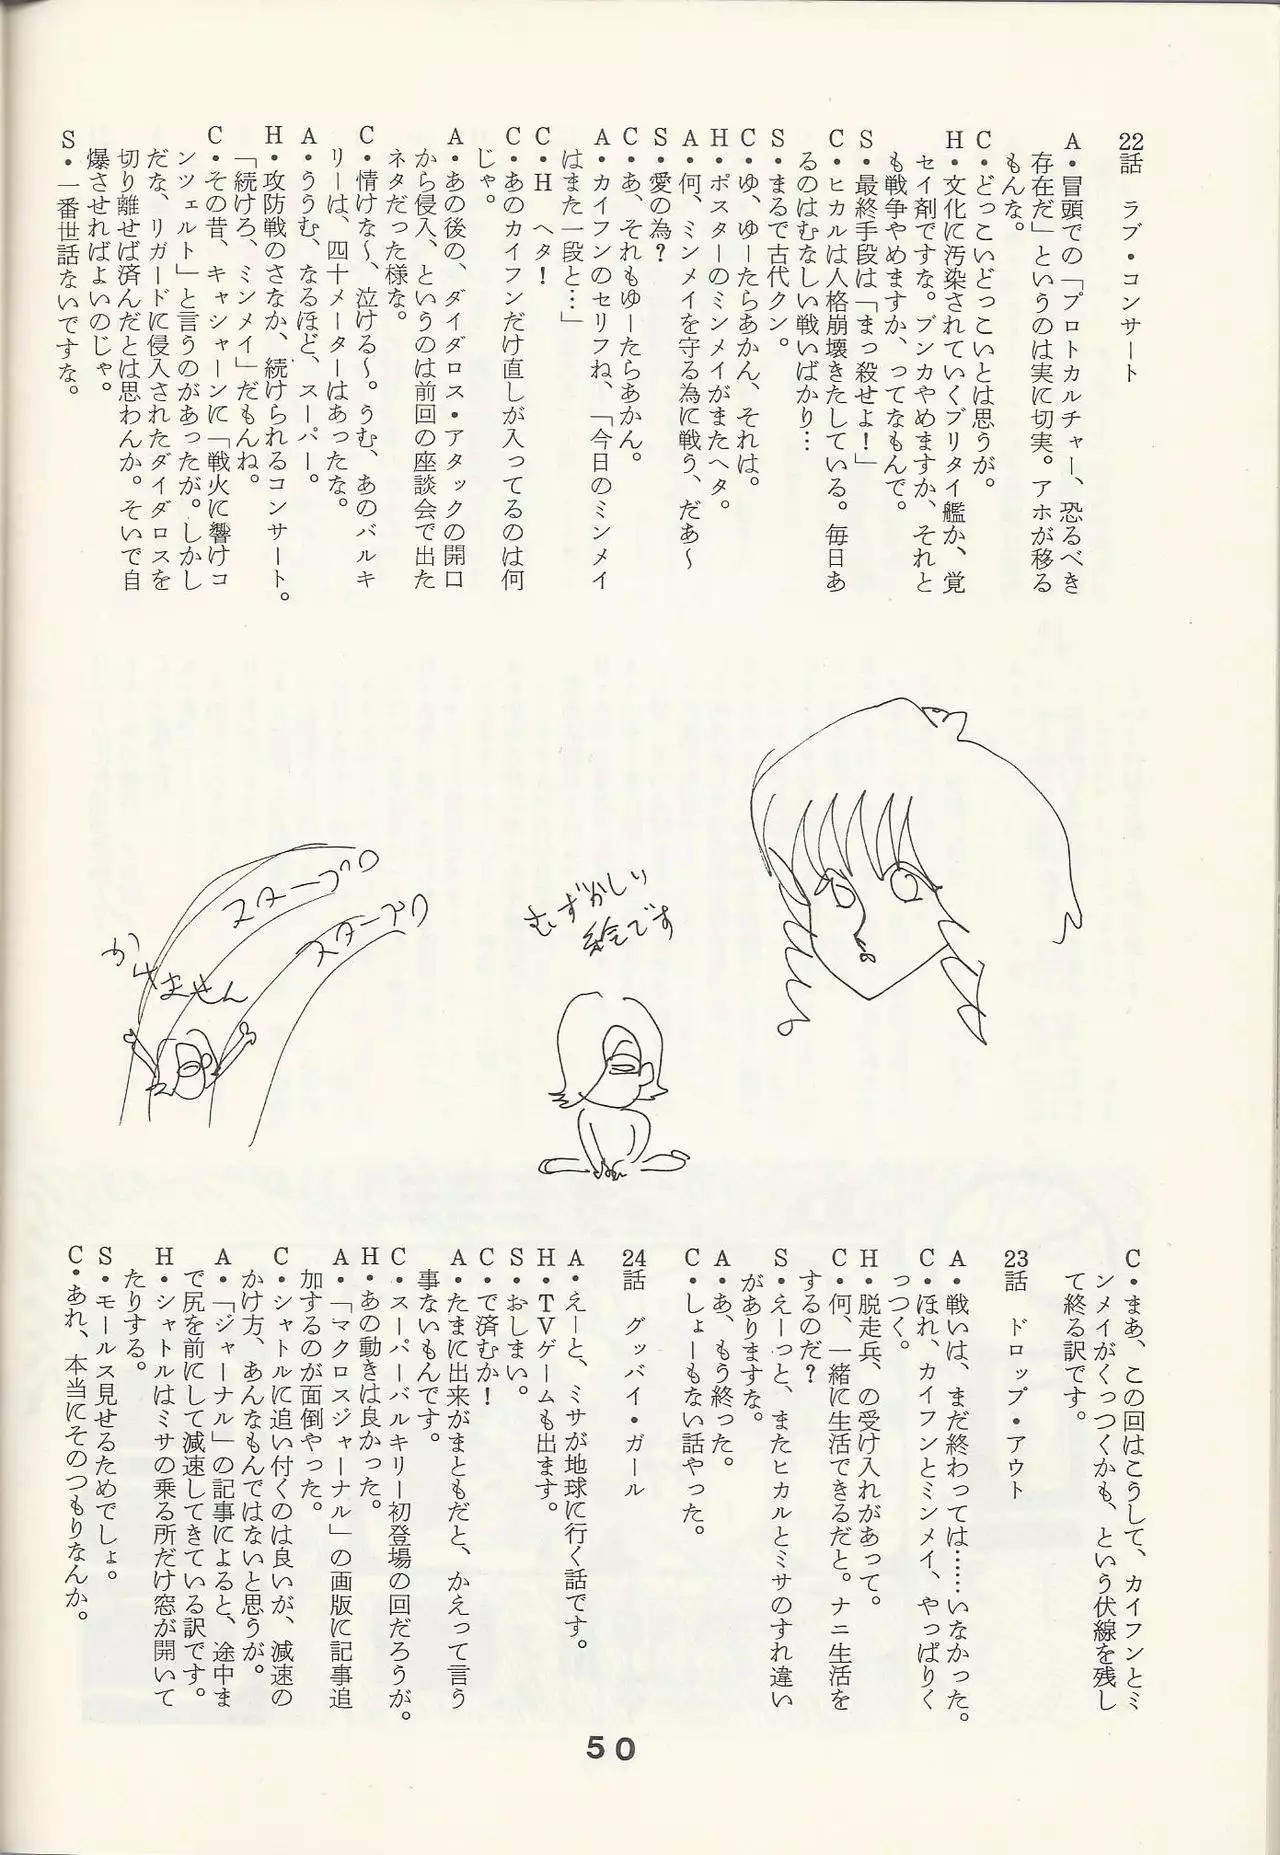 22話　ラブ・コンサート
A・冒頭での「プロトカルチャー、恐るべき
存在だ」というのは実に切実。アホが移る
もんな。
C・どっこいどっこいとは思うが。
H・文化に汚染されていくブリタイ艦か、覚
セイ剤ですな。ブンカやめますか、それと
も戦争やめますか、ってなもんで。
S・最終手段は「まっ殺せよ！」
C・ヒカルは人格崩壊きたしている。毎日あ
るのはむなしい戦いばかり…
S・まるで古代クン。
C・ゆ、ゆーたらあかん、それは。
H・ポスターのミンメイがまたヘタ。
A・何、ミンメイを守る為に戦う、だあ〜
S・愛の為？
C・あ、それもゆーたらあかん。
A・カイフンのセリフね、「今日のミンメイ
はまた一段と…」
C・H　ヘタ！
C・あのカイフンだけ直しが入ってるのは何
じゃ。
A・あの後の、ダイダロス・アタックの開口
から侵入、というのは前回の座談会で出た
ネタだった様な。
C・情けな〜、泣ける〜。うむ、あのバルキ
リーは、四十メーターはあったな。
A・ううむ、なるほど、スーパー。
H・攻防戦のさなか、続けられるコンサート。
「続けろ、ミンメイ」だもんね。
C・その昔、キャシャーンに「戦火に響けコ
ンツェルト」と言うのがあったが。しかし
だな、リガードに侵入されたダイダロスを
切り離せば済んだとは思わんか。そいで自
爆させればよいのじゃ。
S・一番世話ないですな。
むずかしい
絵です
スターブロ
スターブロ
かけません
C・まあ、この回はこうして、カイフンとミ
ンメイがくっつくかも、という伏線を残し
て終る訳です。
23話　ドロップ・アウト
A・戦いは、まだ終わっては……いなかった。
C・ほれ、カイフンとミンメイ、やっぱりく
っつく。
H・脱走兵、の受け入れがあって。
C・何、一緒に生活できるだと。ナニ生活を
するのだ？
S・えーっと、またヒカルとミサのすれ違い
がありますな。
A・あ、もう終った。
C・しょーもない話やった。
24話　グッバイ・ガール
A・えーと、ミサが地球に行く話です。
H・TVゲームも出ます。
S・おしまい。
C・で済むか！
A・たまに出来がまともだと、かえって言う
事ないもんです。
C・スーパーバルキリー初登場の回だろうが。
H・あの動きは良かった。
A・「マクロスジャーナル」の画版に記事追
加するのが面倒やった。
C・シャトルに追い付くのは良いが、減速の
かけ方、あんなもんではないと思うが。
A・「ジャーナル」の記事によると、途中ま
で尻を前にして減速してきている訳です。
H・シャトルはミサの乗る所だけ窓が開いて
たりする。
S・モールス見せるためでしょ。
C・あれ、本当にそのつもりなんか。
50